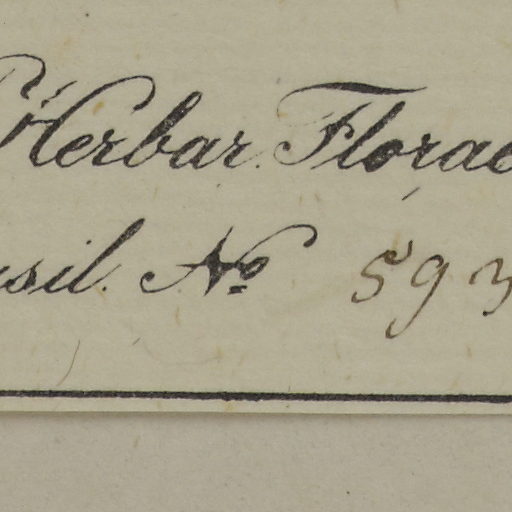 Herbar. Florae
sil. No 593